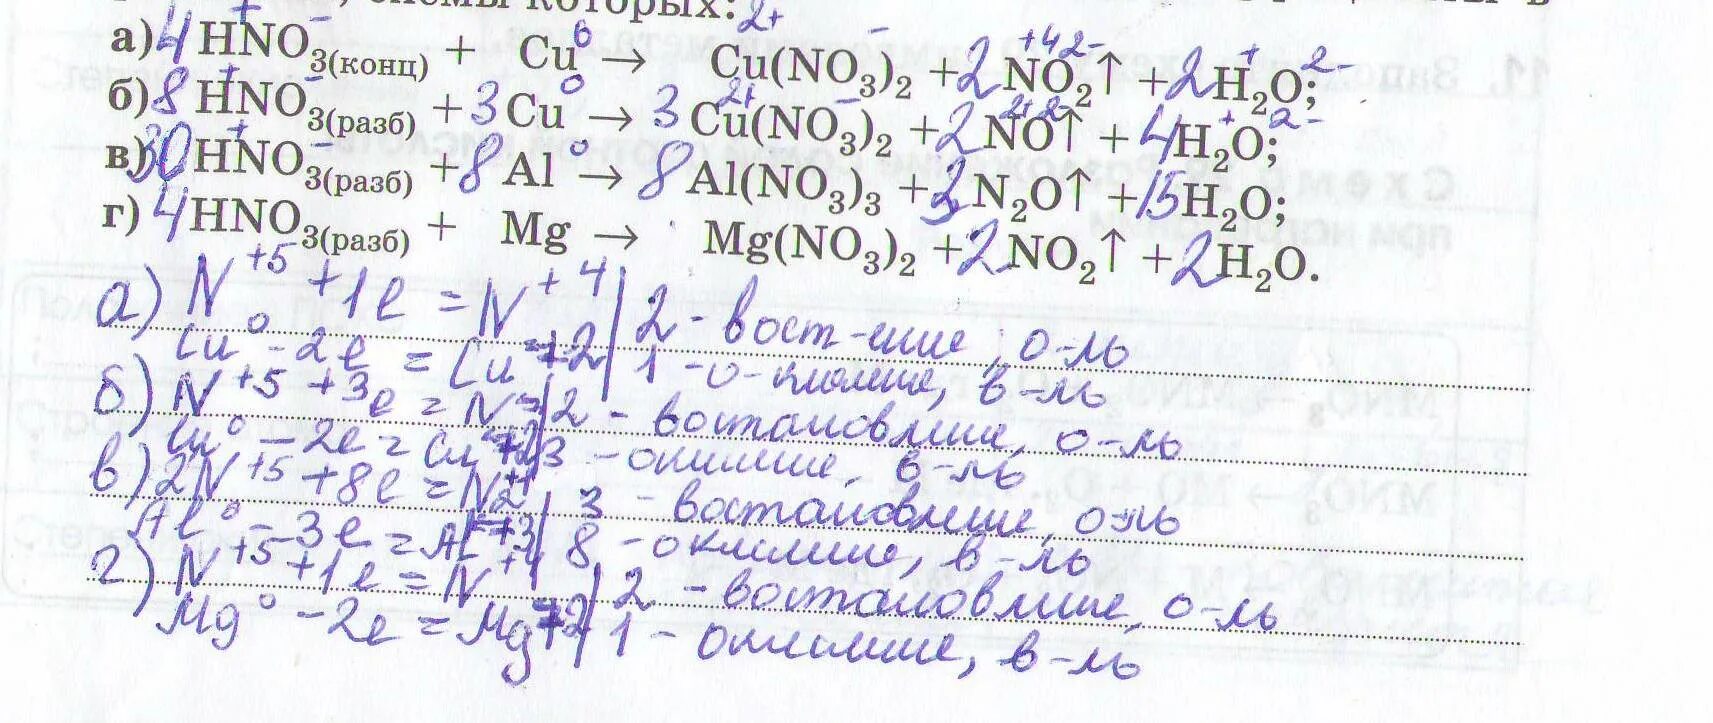 схемы которых:
а) 4HNO₃(конц) + Cu⁰ → Cu(NO₃)₂ + 2NO₂↑ + 2H₂O;
б) 8HNO₃(разб) + 3Cu⁰ → 3Cu(NO₃)₂ + 2NO↑ + 4H₂O;
в) 30HNO₃(разб) + 8Al⁰ → 8Al(NO₃)₃ + 3N₂O↑ + 15H₂O;
г) 4HNO₃(разб) + Mg → Mg(NO₃)₂ + 2NO₂↑ + 2H₂O.
а) N⁺⁵ + 1e = N⁺⁴ | 2 - вост-ение, о-ль
Cu⁰ - 2e = Cu⁺² | 1 - о-кисление, в-ль
б) N⁺⁵ + 3e = N⁺² | 2 - востановление, о-ль
Cu⁰ - 2e = Cu⁺² | 3 - окисление, в-ль
в) 2N⁺⁵ + 8e = N₂⁺¹ | 3 - востановление, о-ль
Al⁰ - 3e = Al⁺³ | 8 - окисление, в-ль
г) N⁺⁵ + 1e = N⁺⁴ | 2 - востановление, о-ль
Mg⁰ - 2e = Mg⁺² | 1 - окисление, в-ль